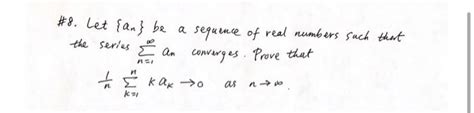 #8. Let {an} be a sequence of real numbers such that
the series ∑_{n=1}^{∞} an converges. Prove that
1/n ∑_{k=1}^{n} k a_k → 0 as n → ∞.